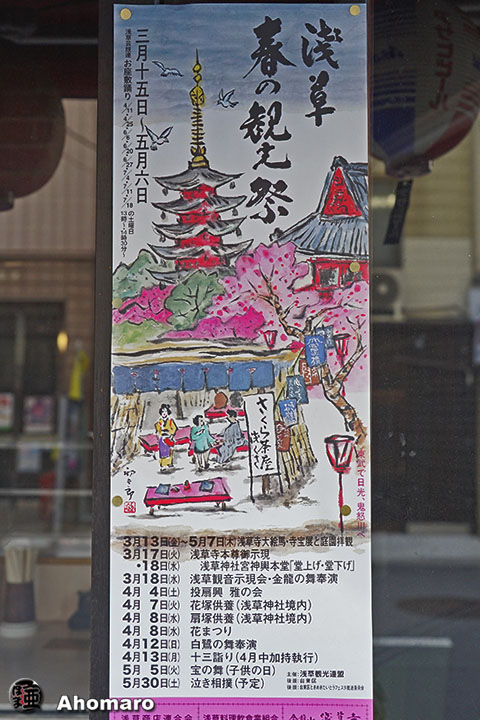 浅草
春の観光祭
三月十五日～五月六日
浅草芸能連 お座敷踊り
の土曜日
13時～14時30分～
さくら茶屋
東武で日光、鬼怒川へ
3月13日(金)～5月7日(木)浅草寺大絵馬・寺宝展と庭園拝観
3月17日(火) 浅草寺本尊御示現
・18日(水) 浅草神社宮神輿本堂「堂上げ・堂下げ」
3月18日(水) 浅草観音示現会・金龍の舞奉演
4月 4日(土) 投扇興 雅の会
4月 7日(火) 花塚供養(浅草神社境内)
4月 8日(水) 扇塚供養(浅草神社境内)
4月 8日(水) 花まつり
4月12日(日) 白鷺の舞奉演
4月13日(月) 十三詣り(4月中加持執行)
5月 5日(火) 宝の舞(子供の日)
5月30日(土) 泣き相撲(予定)
主催：浅草観光連盟
後援：台東区
浅草商店連合会
浅草料理飲食業組合
Ahomaro